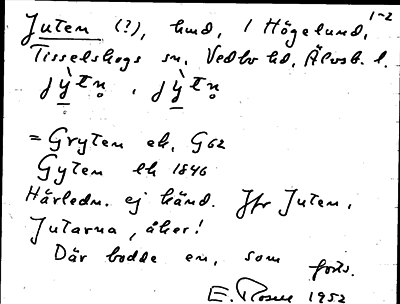 1-2
Juten (?), hmd, i Högelund,
Tisselskogs sn, Vedbo hd, Älvsb. l.
jỳtn̥, jỳtn̥
= Gryten ek, G62
Gyten ek 1846
Härledn. ej känd. Jfr Juten,
Jutarna, åker!
Där bodde en, som
forts.
E. Rosell 1952